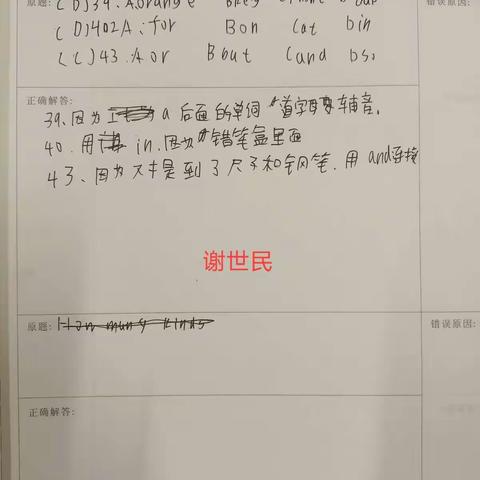 原题: (D)39.A.orange
错误原因:
(D)402A:for Bon Cat bin
(C)43.A or Bbut Cand Dso
正确解答:
39、因为 a 后面的单词 首字母 辅音。
40.用 in.因为 铅笔盒里面
43、因为 提到了尺子和钢笔.用 and连接
谢世民
原题: How many kinds
错误原因:
正确解答: